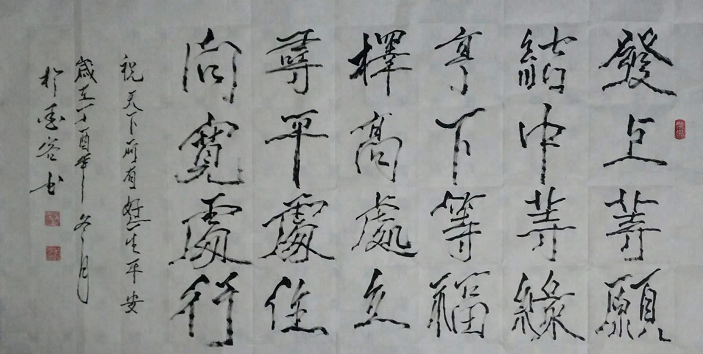 發上等願
結中等緣
享下等福
擇高處立
尋平處住
向寬處行
祝天下所有眾生平安
歲在丁酉年冬月